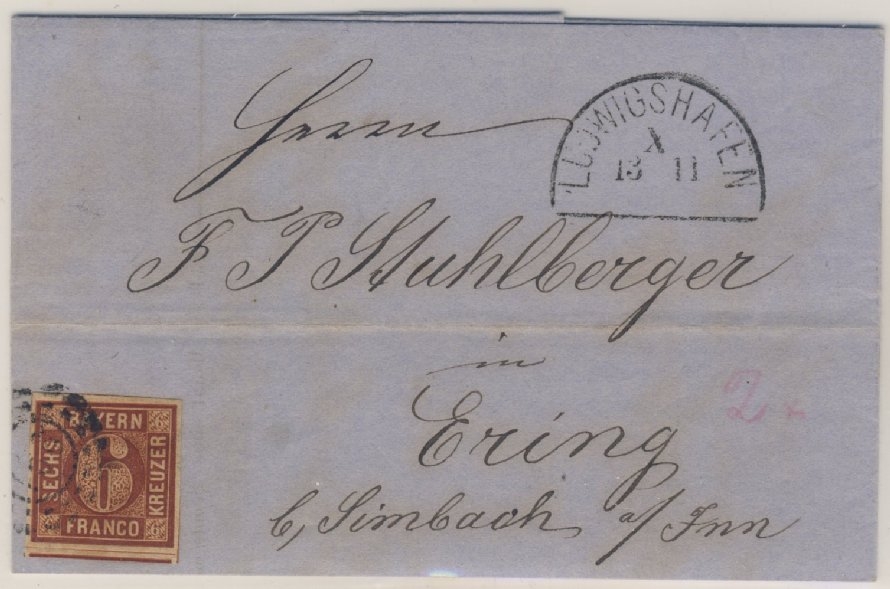 Herrn
LUDWIGSHAFEN
X
13 11
F P Stuhlberger
in
Ering
b, Simbach a/Inn
2 x
BAYERN
SECHS
6
KREUZER
FRANCO
6